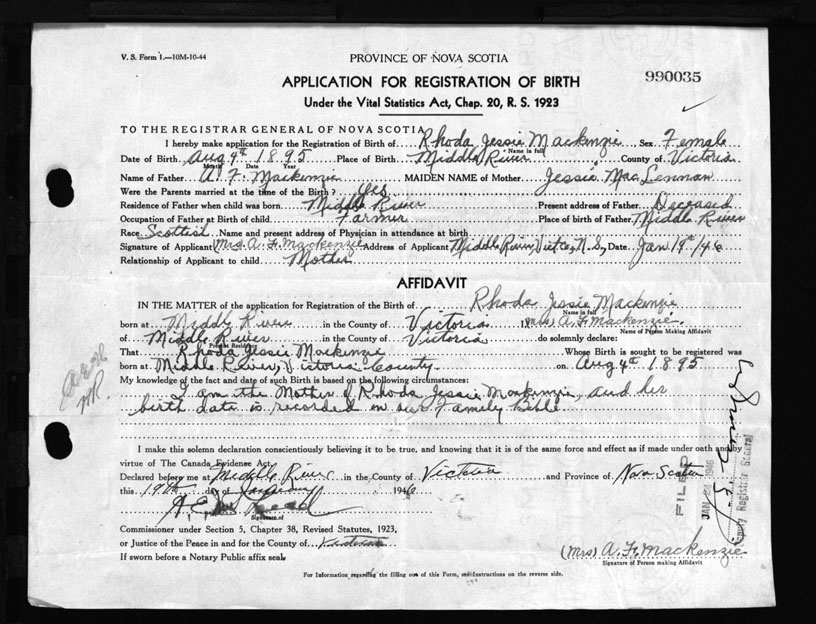 V. S. Form 1.—10M-10-44
PROVINCE OF NOVA SCOTIA
990035
APPLICATION FOR REGISTRATION OF BIRTH
Under the Vital Statistics Act, Chap. 20, R. S. 1923
TO THE REGISTRAR GENERAL OF NOVA SCOTIA
I hereby make application for the Registration of Birth of Rhoda Jessie Mackenzie Sex Female
Name in full
Date of Birth Aug 4th 1895 Place of Birth Middle River County of Victoria
Month Date Year
Name of Father A. F. Mackenzie MAIDEN NAME of Mother Jessie MacLennan
Were the Parents married at the time of the Birth? Yes
Residence of Father when child was born Middle River Present address of Father Deceased
Occupation of Father at Birth of child Farmer Place of birth of Father Middle River
Race Scottish Name and present address of Physician in attendance at birth
Signature of Applicant Mrs. A. F. Mackenzie Address of Applicant Middle River, Vict Co, N. S, Date Jan 19th /46
Relationship of Applicant to child Mother
AFFIDAVIT
IN THE MATTER of the application for Registration of the Birth of Rhoda Jessie Mackenzie
Name in full
born at Middle River in the County of Victoria (Mrs) A. F. Mackenzie.
Name of Person Making Affidavit
of Middle River in the County of Victoria do solemnly declare:
Present Residence
That Rhoda Jessie Mackenzie Whose Birth is sought to be registered was
born at Middle River, Victoria County on Aug 4th 1895
My knowledge of the fact and date of such Birth is based on the following circumstances:
I am the Mother of Rhoda Jessie Mackenzie, and her
birth date is recorded in our Family Bible
I make this solemn declaration conscientiously believing it to be true, and knowing that it is of the same force and effect as if made under oath and by
virtue of The Canada Evidence Act.
Declared before me at Middle River in the County of Victoria and Province of Nova Scotia
this 19th day of January 1946
Signature of
Commissioner under Section 5, Chapter 38, Revised Statutes, 1923,
or Justice of the Peace in and for the County of Victoria
If sworn before a Notary Public affix seal.
(Mrs) A. F. Mackenzie
Signature of Person making Affidavit
For Information regarding the filling out of this Form, see Instructions on the reverse side.
FILED
1946
Deputy Registrar General